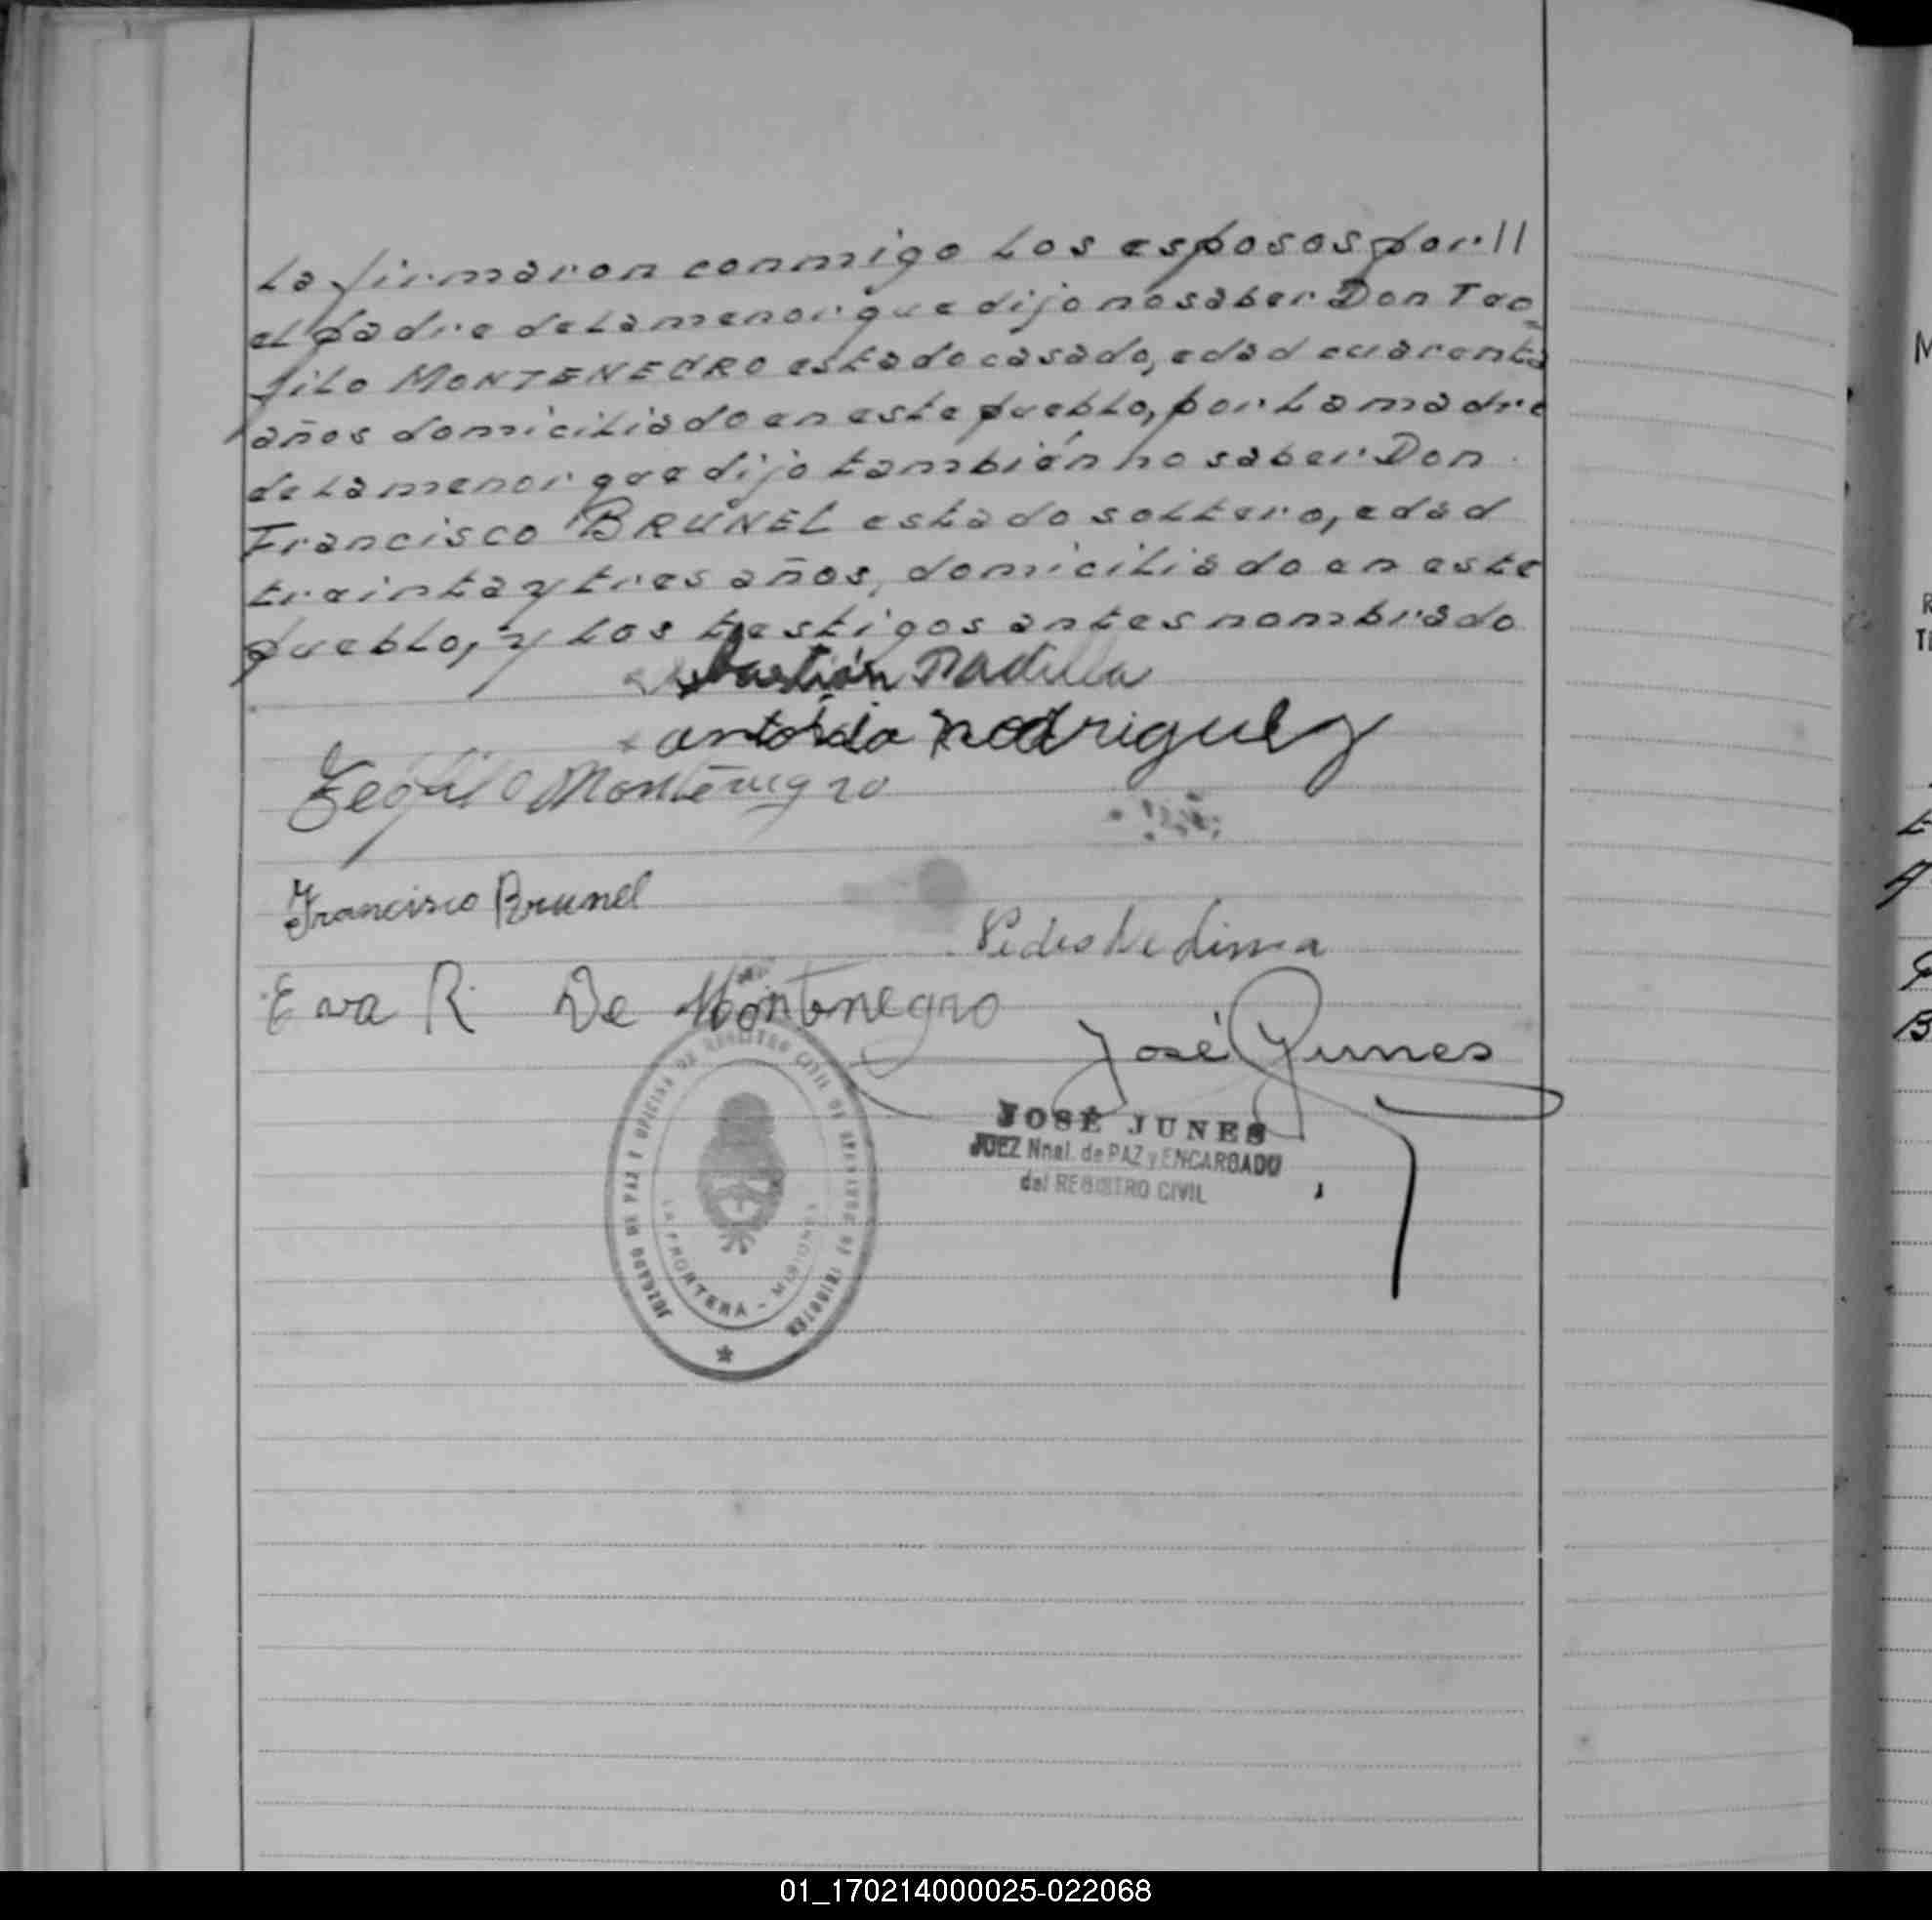 La firmaron conmigo Los esposos por //
el padre de La menor que dijo no saber Don Teo
filo MONTENEGRO estado casado, edad cuarenta
años domiciliado en este pueblo, por La madre
de La menor que dijo también no saber Don
Francisco BRUNEL estado soltero, edad
treinta y tres años, domiciliado en este
pueblo, y Los testigos antes nombrado
Sebastián Padilla
antonia Rodriguez
Teófilo Montenegro
Francisco Brunel
Pedro De Lima
Eva R. De Montenegro
José Junes
JOSÉ JUNES
JUEZ Nnal. de PAZ y ENCARGADO
del REGISTRO CIVIL
JUZGADO DE PAZ Y OFICINA DE REGISTRO CIVIL DE
LA FRONTERA - MISIONES
01_170214000025-022068